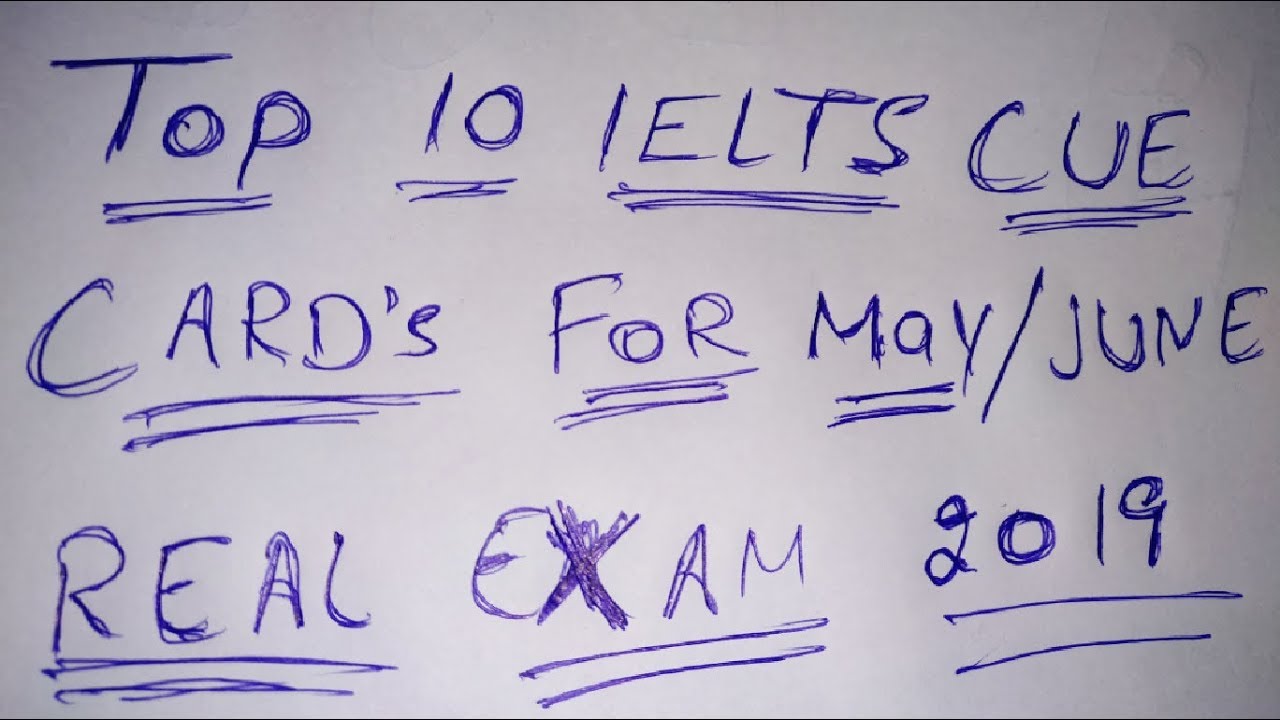 Top 10 IELTS CUE
CARD's FOR MaY/JUNE
REAL EXAM 2019